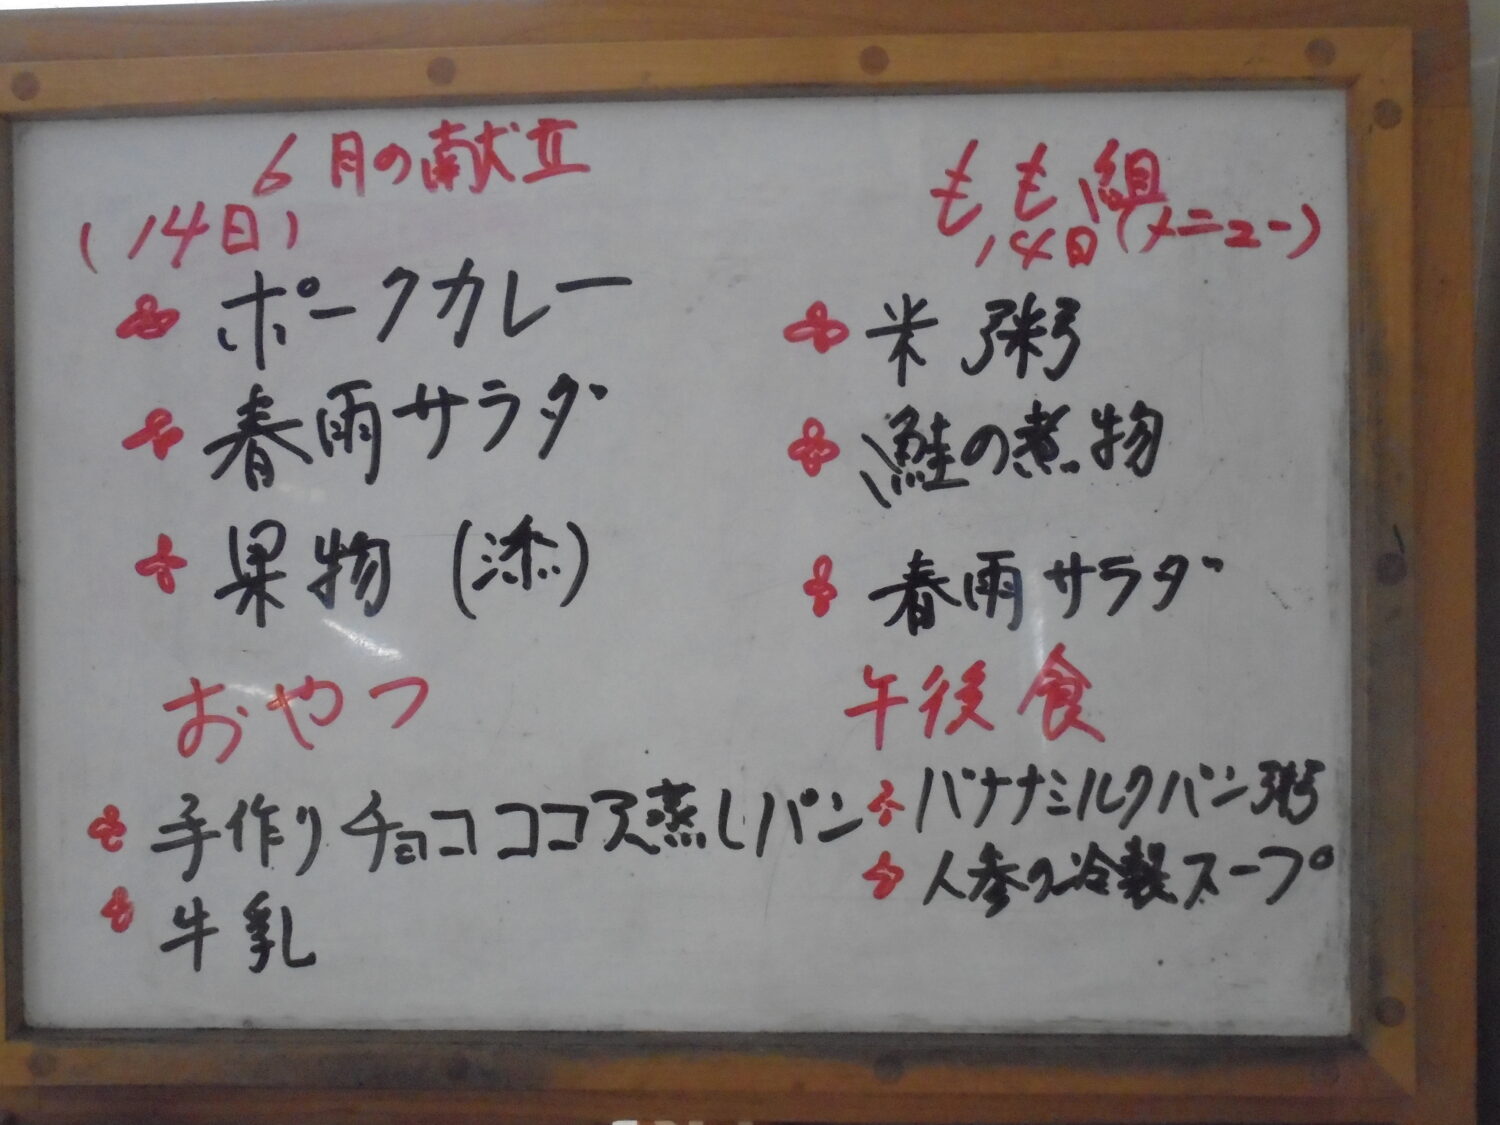 6月の献立
(14日)
ポークカレー
春雨サラダ
果物 (添)
おやつ
手作りチョコココア蒸しパン
牛乳
もも組
14日(メニュー)
米粥
鮭の煮物
春雨サラダ
午後食
バナナミルクパン粥
人参の冷製スープ